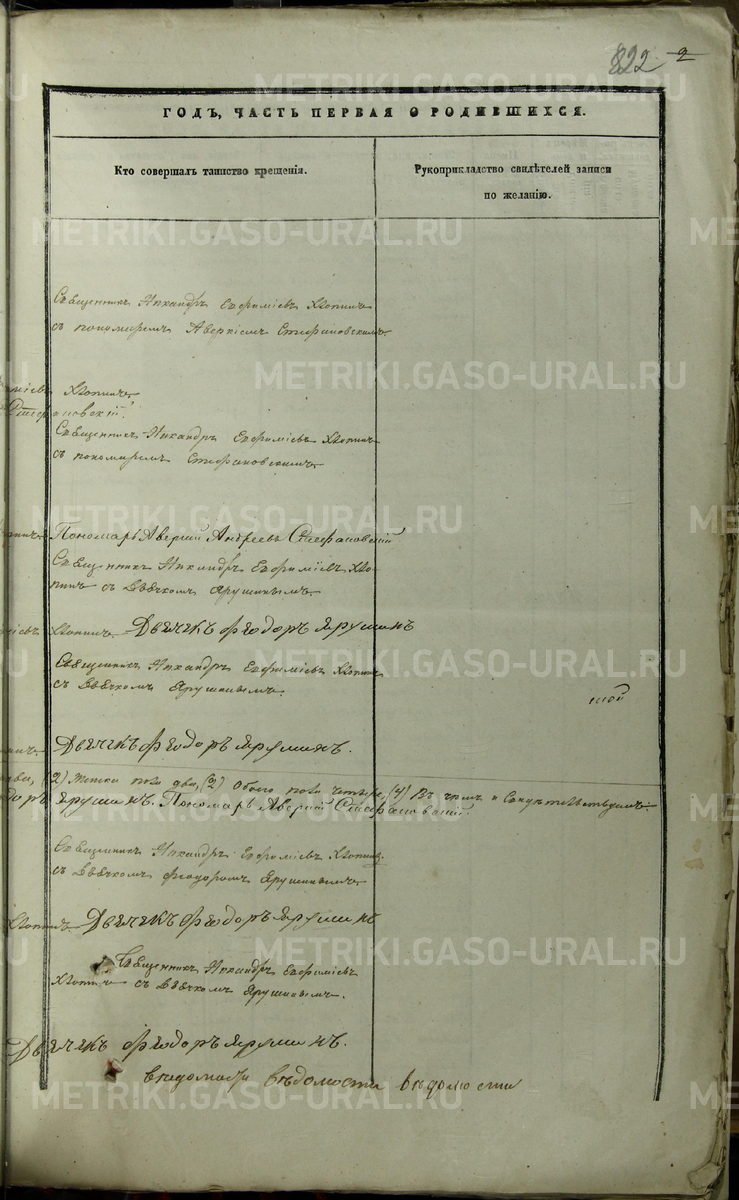 822 2
ГОДЪ, ЧАСТЬ ПЕРВАЯ О РОДИВШИХСЯ.
Кто совершалъ таинство крещенія.
Рукоприкладство свидѣтелей записи
по желанію.
Священникъ Никандръ Евфиміевъ Хлопинъ
съ пономаремъ Аверкіемъ Стефановскимъ
Хлопинъ
Стефановскій.
Священникъ Никандръ Евфиміевъ Хлопинъ
съ пономаремъ Стефановскимъ
Пономарь Аверкій Андреевъ Стефановскій
Священникъ Никандръ Евфиміевъ Хло-
пинъ съ Дьячкомъ Ярушинымъ
Хлопинъ Дьячекъ Феодоръ Ярушинъ
Священникъ Никандръ Евфиміевъ Хлопинъ
съ Дьячкомъ Ярушинымъ.
Дьячекъ Феодоръ Ярушинъ.
(2) Женска пола два, Обоего пола четыре, (4) Въ чемъ и Свидѣтельствуемъ
Ярушинъ. Пономарь Аверкій Стефановскій.
Священникъ Никандръ Евфиміевъ Хлопинъ
съ Дьячкомъ Феодоромъ Ярушинымъ
Хлопинъ. Дьячекъ Феодоръ Ярушинъ
Священникъ Никандръ Евфиміевъ
Хлопинъ съ Дьячкомъ Ярушинымъ.
Дьячекъ Феодоръ Ярушинъ.
вѣдомости вѣдомости вѣдомости
METRIKI.GASO-URAL.RU